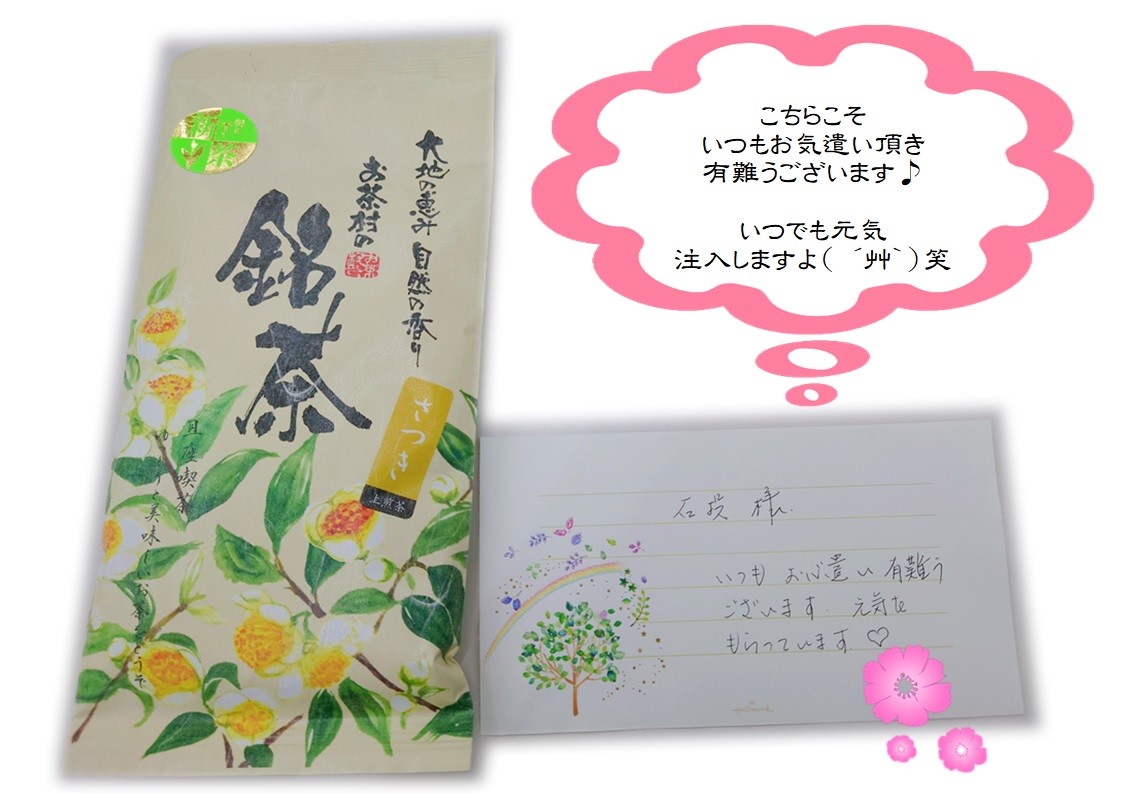 大地の恵み 自然の香り
お茶村の
銘茶
さつき
上煎茶
且座喫茶
ゆっくりと美味しいお茶をどうぞ
こちらこそ
いつもお気遣い頂き
有難うございます♪
いつでも元気
注入しますよ( ´艸｀)笑
石投 様
いつも お心遣い 有難う
ございます. 元気を
もらっています ♡